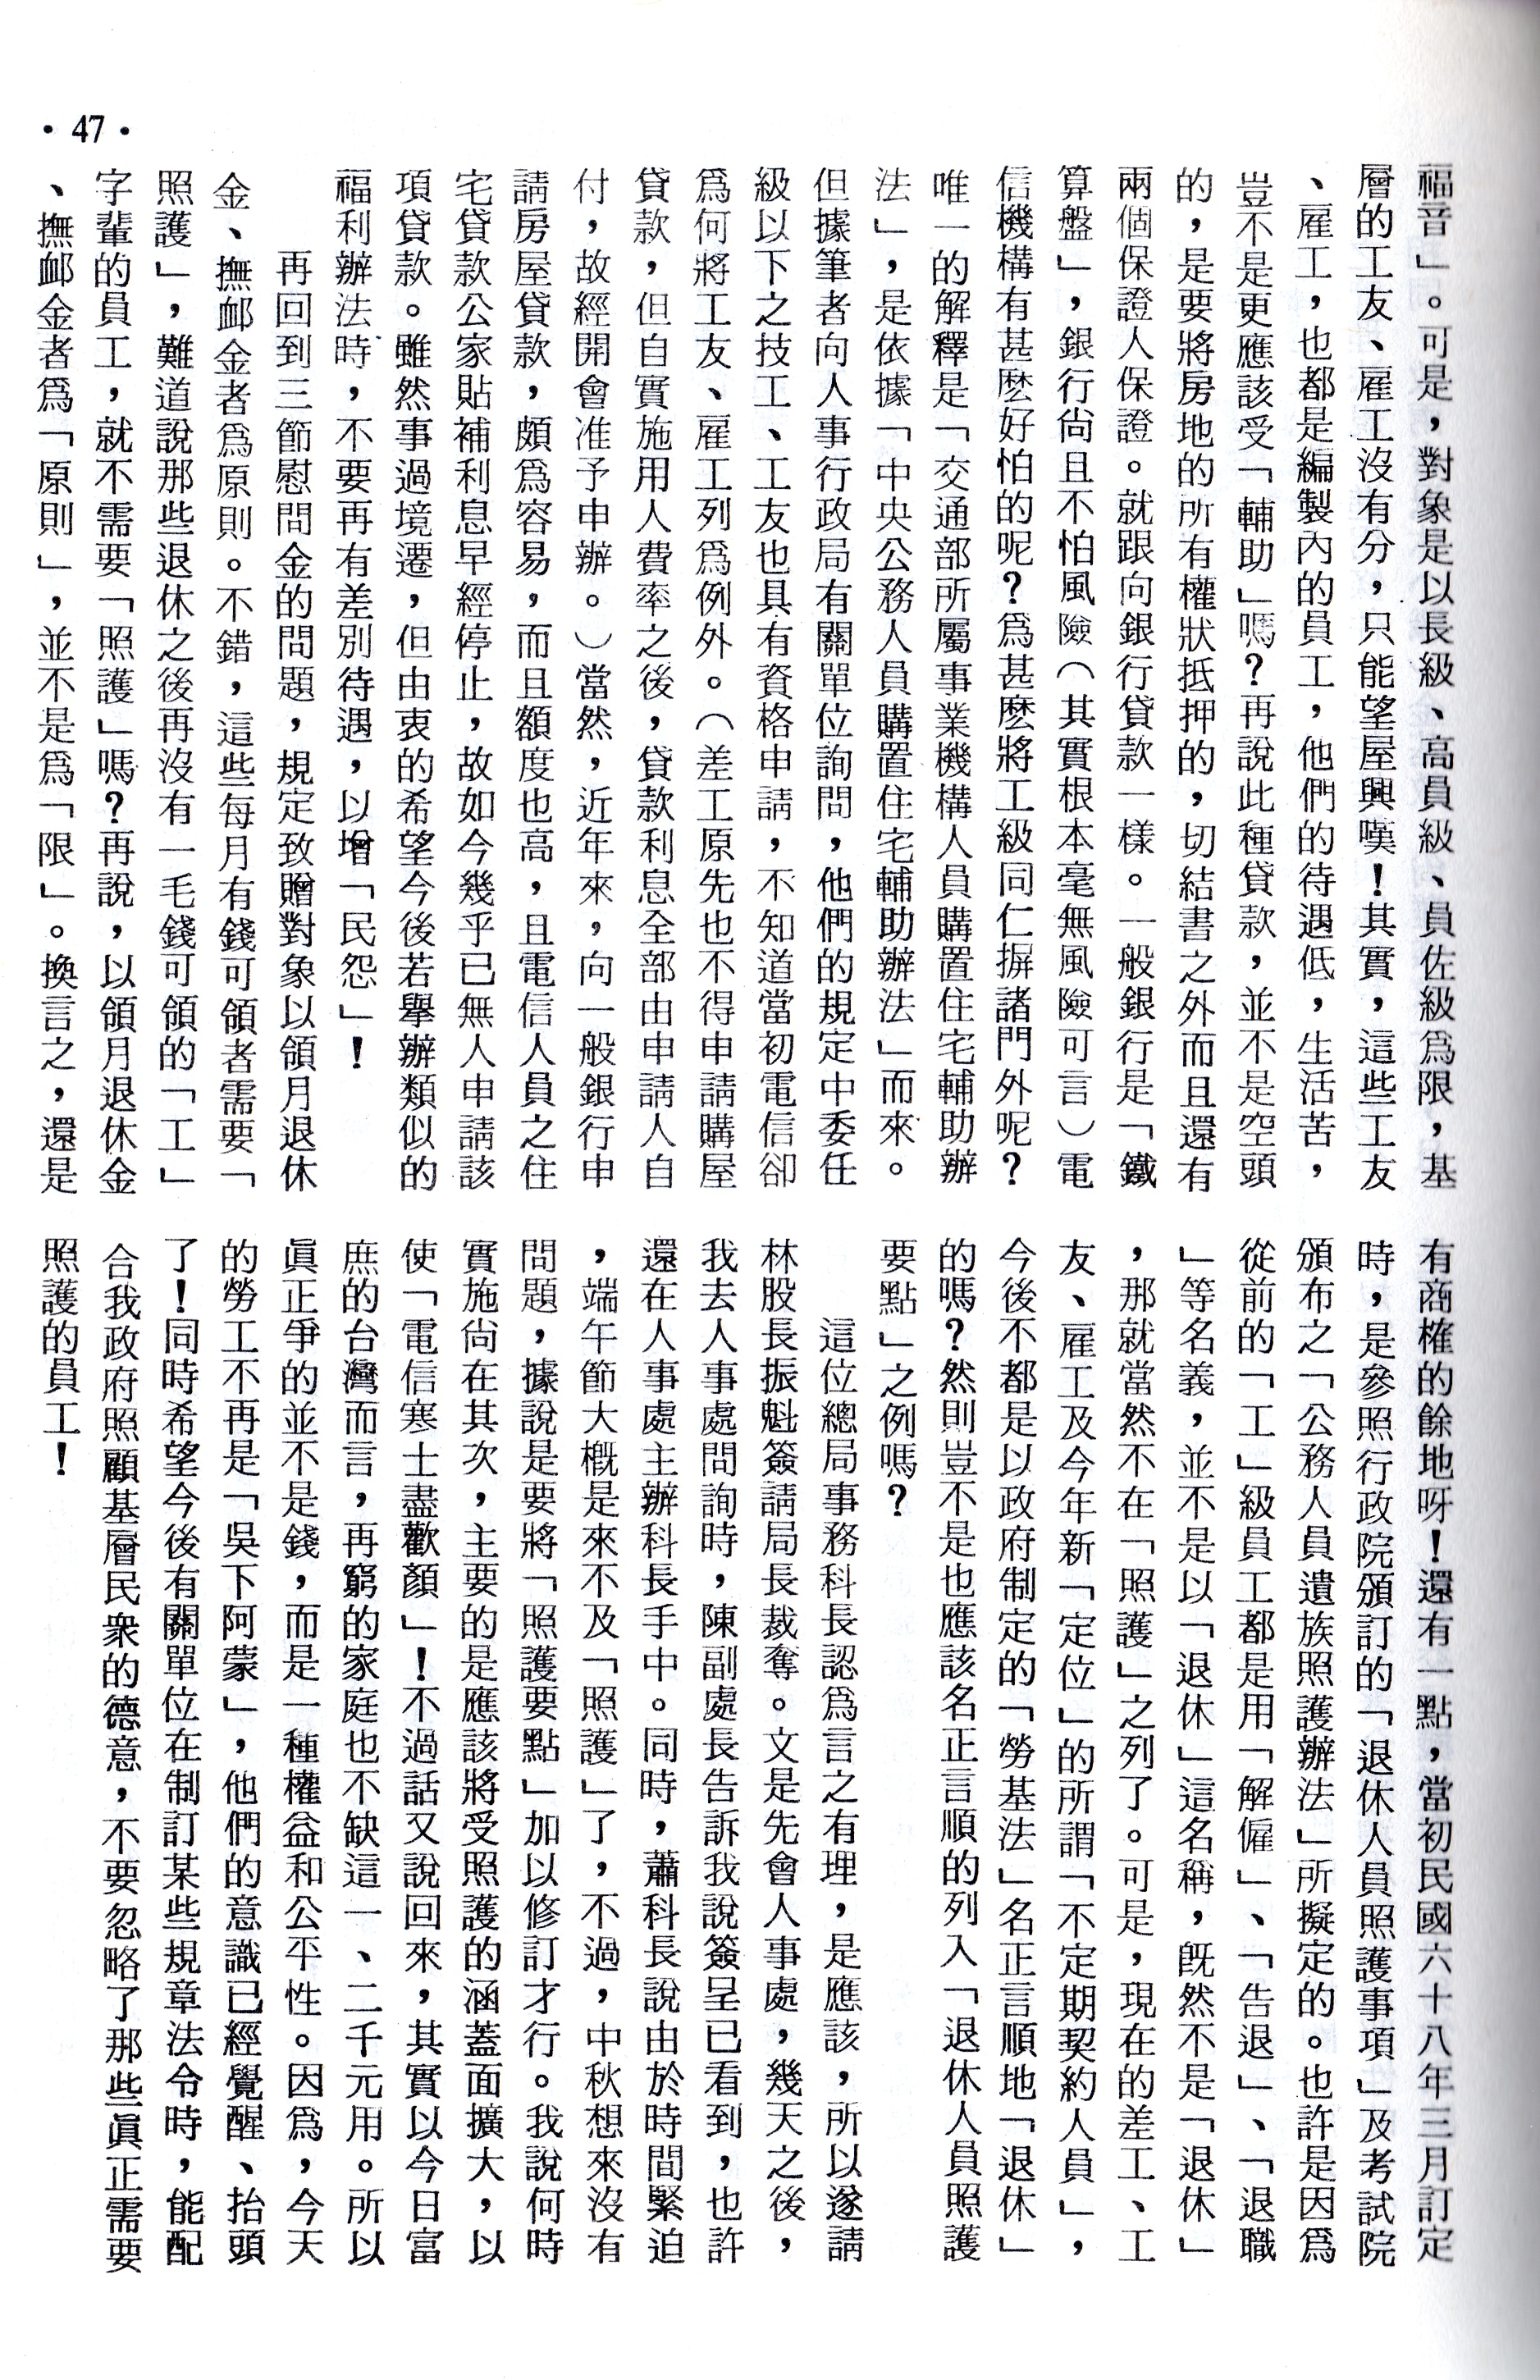 福音」。可是，對象是以長級、高員級、員佐級爲限，基
層的工友、雇工沒有分，只能望屋興嘆！其實，這些工友
、雇工，也都是編製內的員工，他們的待遇低，生活苦，
豈不是更應該受「輔助」嗎？再說此種貸款，並不是空頭
的，是要將房地的所有權狀抵押的，切結書之外而且還有
兩個保證人保證。就跟向銀行貸款一樣。一般銀行是「鐵
算盤」，銀行尙且不怕風險（其實根本毫無風險可言）電
信機構有甚麽好怕的呢？爲甚麽將工級同仁摒諸門外呢？
唯一的解釋是「交通部所屬事業機構人員購置住宅輔助辦
法」，是依據「中央公務人員購置住宅輔助辦法」而來。
但據筆者向人事行政局有關單位詢問，他們的規定中委任
級以下之技工、工友也具有資格申請，不知道當初電信卻
爲何將工友、雇工列爲例外。（差工原先也不得申請購屋
貸款，但自實施用人費率之後，貸款利息全部由申請人自
付，故經開會准予申辦。）當然，近年來，向一般銀行申
請房屋貸款，頗爲容易，而且額度也高，且電信人員之住
宅貸款公家貼補利息早經停止，故如今幾乎已無人申請該
項貸款。雖然事過境遷，但由衷的希望今後若舉辦類似的
福利辦法時，不要再有差別待遇，以增「民怨」！
再回到三節慰問金的問題，規定致贈對象以領月退休
金、撫卹金者爲原則。不錯，這些每月有錢可領者需要「
照護」，難道說那些退休之後再沒有一毛錢可領的「工」
字輩的員工，就不需要「照護」嗎？再說，以領月退休金
、撫卹金者爲「原則」，並不是爲「限」。換言之，還是
有商榷的餘地呀！還有一點，當初民國六十八年三月訂定
時，是參照行政院頒訂的「退休人員照護事項」及考試院
頒布之「公務人員遺族照護辦法」所擬定的。也許是因爲
從前的「工」級員工都是用「解僱」、「告退」、「退職
」等名義，並不是以「退休」這名稱，旣然不是「退休」
，那就當然不在「照護」之列了。可是，現在的差工、工
友、雇工及今年新「定位」的所謂「不定期契約人員」，
今後不都是以政府制定的「勞基法」名正言順地「退休」
的嗎？然則豈不是也應該名正言順的列入「退休人員照護
要點」之例嗎？
這位總局事務科長認爲言之有理，是應該，所以遂請
林股長振魁簽請局長裁奪。文是先會人事處，幾天之後，
我去人事處問詢時，陳副處長告訴我說簽呈已看到，也許
還在人事處主辦科長手中。同時，蕭科長說由於時間緊迫
，端午節大概是來不及「照護」了，不過，中秋想來沒有
問題，據說是要將「照護要點」加以修訂才行。我說何時
實施尙在其次，主要的是應該將受照護的涵蓋面擴大，以
使「電信寒士盡歡顏」！不過話又說回來，其實以今日富
庶的台灣而言，再窮的家庭也不缺這一、二千元用。所以
眞正爭的並不是錢，而是一種權益和公平性。因爲，今天
的勞工不再是「吳下阿蒙」，他們的意識已經覺醒、抬頭
了！同時希望今後有關單位在制訂某些規章法令時，能配
合我政府照顧基層民衆的德意，不要忽略了那些眞正需要
照護的員工！
•47•